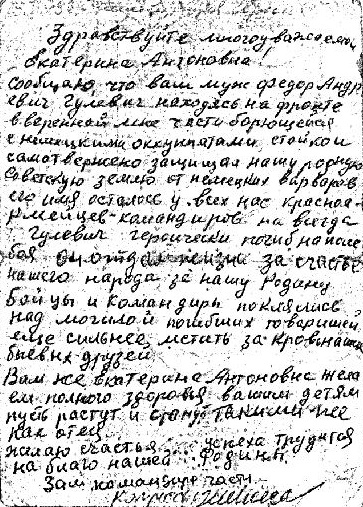 Здравствуйте многоуважаемая
Екатерина Антоновна!
Сообщаю что ваш муж Федор Андр
евич Гулевич находясь на фронте
в вверенной мне части борющейся
с немецкими оккупнтами стойко и
самотвержено защищая нашу родную
Советскую землю от немецких варваров
его имя осталось у всех нас красноа-
рмейцев-командиров на всегда
Гулевич героически погиб на поле
боя он отдал жизнь за счастье
нашего народа за нашу Родину
Бойцы и командиры поклялись
над могилой погибших товарищей
еще сильнее мстить за кровь наших
боевых друзей
Вам же Екатерина Антоновна жела
ем полного здоровья вашим детям
пусть растут и станут такими же
как отец
желаю счастья успеха трудится
на благо нашей Родины
Зам командире части